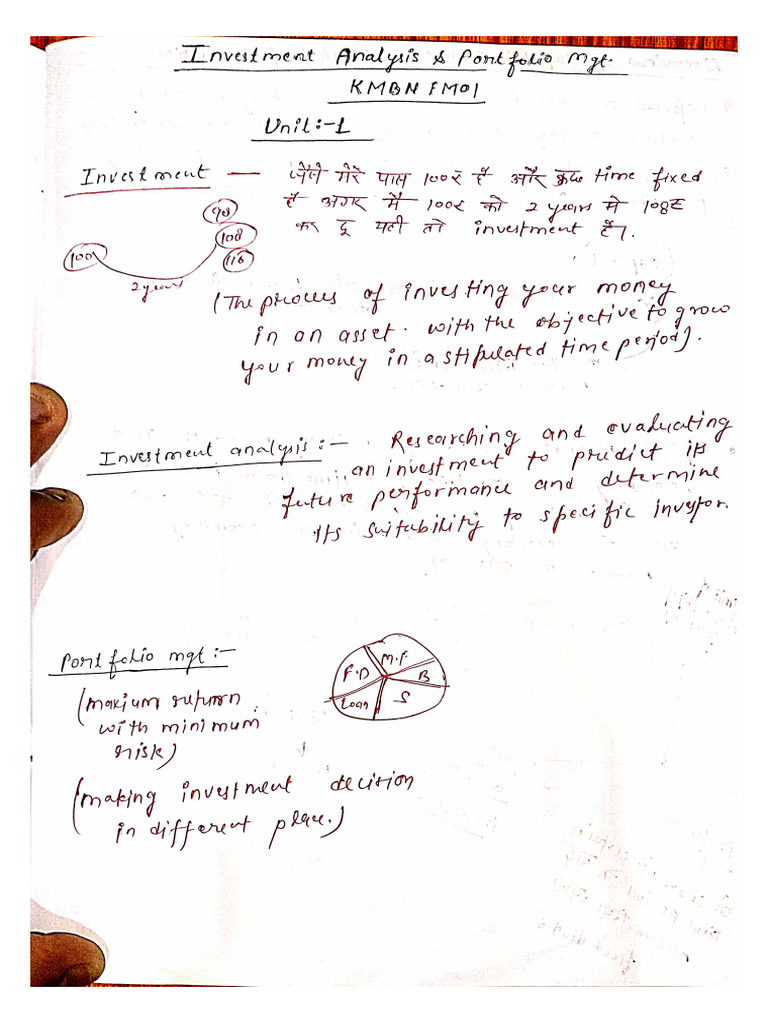 Investment Analysis & Portfolio Mgt.
KMBN FM01
Unit:-1
Investment — जैसे मेरे पास 100₹ है और कुछ time fixed
है अगर मै 100₹ को 2 years मे 108₹
कर दू यही तो investment है।
90
108
116
100
2 years
(The process of investing your money
in an asset. with the objective to grow
your money in a stipulated time period).
Investment analysis :— Researching and evaluating
an investment to predict its
future performance and determine
its suitability to specific investor.
Portfolio mgt :-
(maxium return
with minimum
risk)
F.D
M.F
B
S
Loan
(making investment decition
in different place.)